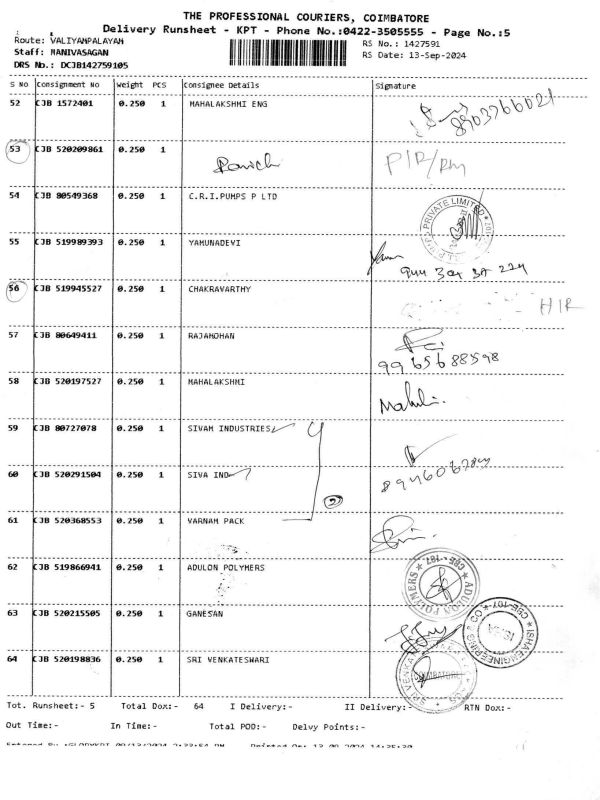 THE PROFESSIONAL COURIERS, COIMBATORE
Delivery Runsheet - KPT - Phone No.:0422-3505555 - Page No.:5
Route: VALIYAMPALAYAM
RS No.: 1427591
Staff: MANIVASAGAN
RS Date: 13-Sep-2024
DRS No.: DCJB142759105
S No Consignment No Weight PCS Consignee Details Signature
52 CJB 1572401 0.250 1 MAHALAKSHMI ENG
8903766021
53 CJB 520209861 0.250 1
54 CJB 80549368 0.250 1 C.R.I.PUMPS P LTD
PRIVATE LIMITED
55 CJB 519989393 0.250 1 YAMUNADEVI
56 CJB 519945527 0.250 1 CHAKRAVARTHY
57 CJB 80649411 0.250 1 RAJAMOHAN
9965688598
58 CJB 520197527 0.250 1 MAHALAKSHMI
59 CJB 80727078 0.250 1 SIVAM INDUSTRIES
60 CJB 520291504 0.250 1 SIVA IND
61 CJB 520368553 0.250 1 VARNAM PACK
62 CJB 519866941 0.250 1 ADULON POLYMERS
ADULON POLYMERS
63 CJB 520215505 0.250 1 GANESAN
ISHA ENGINEERING & CO
64 CJB 520198836 0.250 1 SRI VENKATESWARI
COIMBATORE
Tot. Runsheet:- 5 Total Dox:- 64 I Delivery:- II Delivery:- RTN Dox:-
Out Time:- In Time:- Total POD:- Delvy Points:-